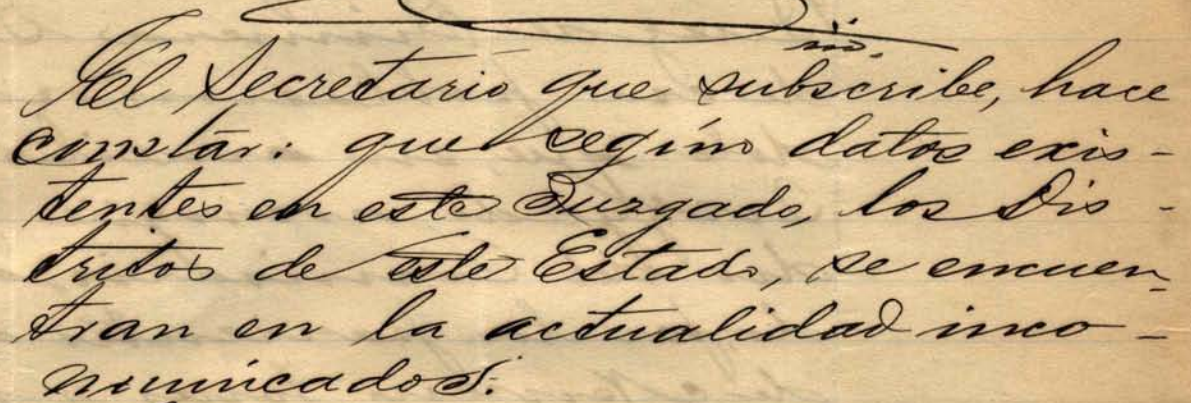 El Secretario que subscribe, hace
constar: que según datos exis-
tentes en este Juzgado, los Dis-
tritos de este Estado, se encuen-
tran en la actualidad inco-
municados.